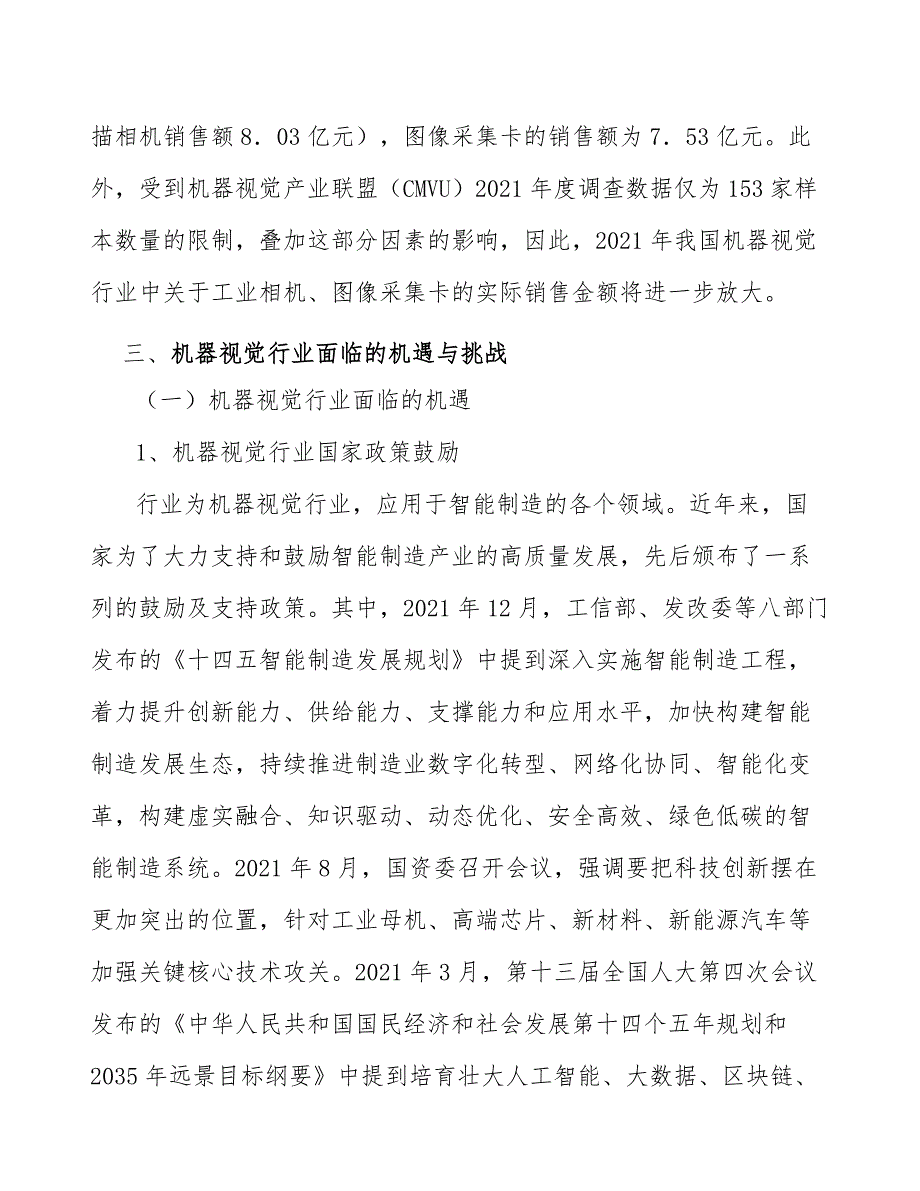 描相机销售额8．03亿元），图像采集卡的销售额为7．53亿元。此
外，受到机器视觉产业联盟（CMVU）2021年度调查数据仅为153家样
本数量的限制，叠加这部分因素的影响，因此，2021年我国机器视觉
行业中关于工业相机、图像采集卡的实际销售金额将进一步放大。
三、机器视觉行业面临的机遇与挑战
（一）机器视觉行业面临的机遇
1、机器视觉行业国家政策鼓励
行业为机器视觉行业，应用于智能制造的各个领域。近年来，国
家为了大力支持和鼓励智能制造产业的高质量发展，先后颁布了一系
列的鼓励及支持政策。其中，2021年12月，工信部、发改委等八部门
发布的《十四五智能制造发展规划》中提到深入实施智能制造工程，
着力提升创新能力、供给能力、支撑能力和应用水平，加快构建智能
制造发展生态，持续推进制造业数字化转型、网络化协同、智能化变
革，构建虚实融合、知识驱动、动态优化、安全高效、绿色低碳的智
能制造系统。2021年8月，国资委召开会议，强调要把科技创新摆在
更加突出的位置，针对工业母机、高端芯片、新材料、新能源汽车等
加强关键核心技术攻关。2021年3月，第十三届全国人大第四次会议
发布的《中华人民共和国国民经济和社会发展第十四个五年规划和
2035年远景目标纲要》中提到培育壮大人工智能、大数据、区块链、